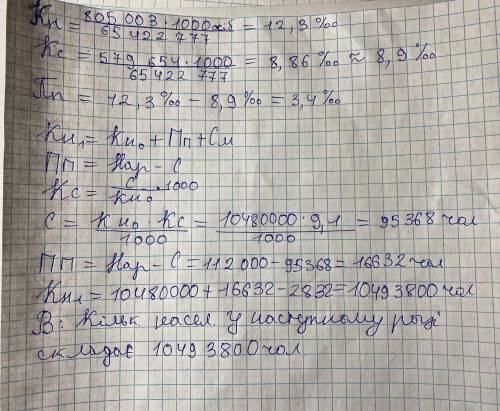 Кн = 805 003 · 1000 / 65 422 777 = 12,3 ‰
Кс = 579 654 · 1000 / 65 422 777 = 8,86 ‰ ≈ 8,9 ‰
Пп = 12,3 ‰ − 8,9 ‰ = 3,4 ‰
Кн₁ = Кн₀ + Пп + См
ПП = Нар − С
Кс = С / Кн₀ · 1000
С = Кн₀ · Кс / 1000 = 10480000 · 9,1 / 1000 = 95368 чол
ПП = Нар − С = 112 000 − 95368 = 16632 чол
Кн₁ = 10480000 + 16632 − 2832 = 10493800 чол
В: Кільк. насел. у наступному році
складає 10493800 чол